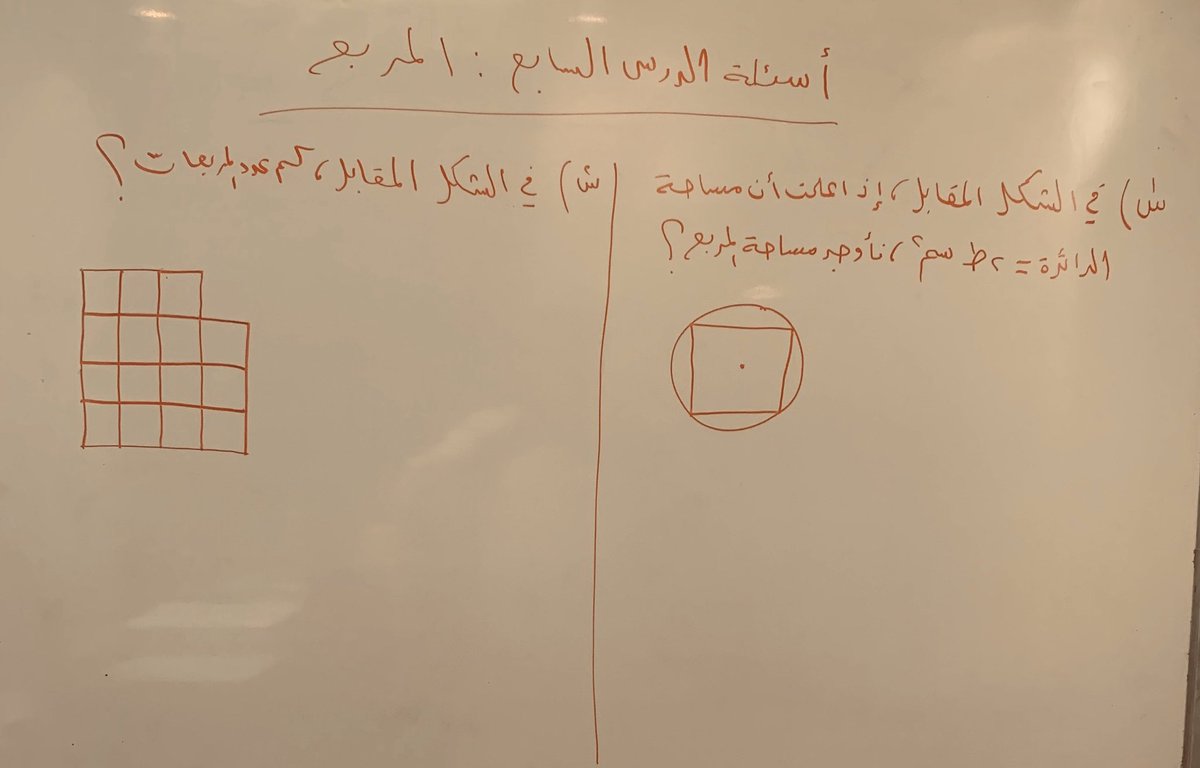 أسئلة الدرس السابع : المربع
س١) في الشكل المقابل، إذا علمت أن مساحة
الدائرة = ٢ط سم٢، فأوجد مساحة المربع؟
س٢) في الشكل المقابل، كم عدد المربعات؟